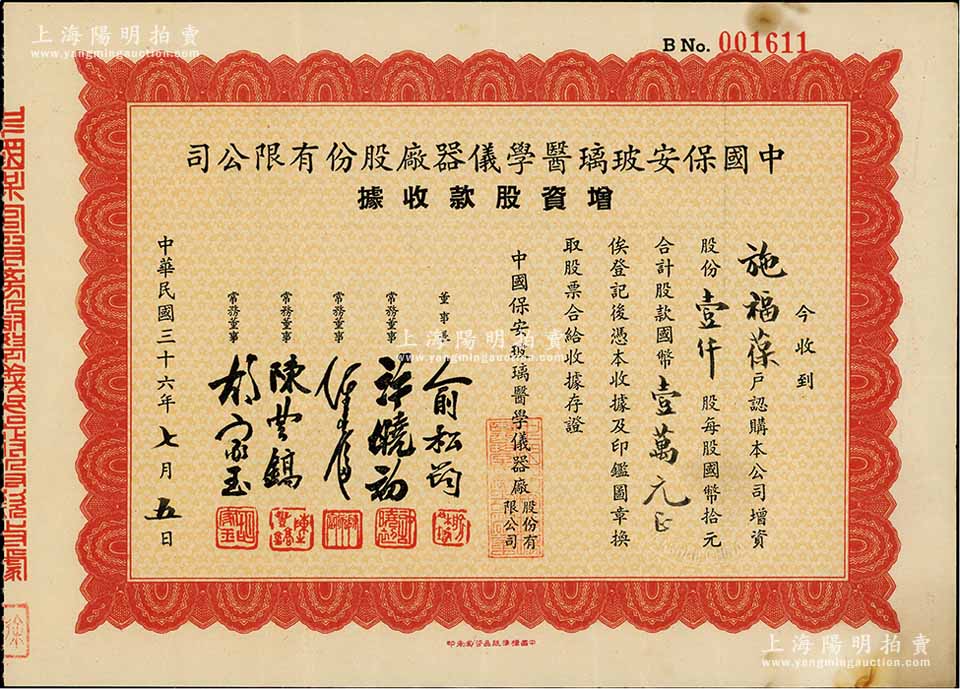 上海陽明拍賣
www.yangmingauction.com
B No. 001611
中國保安玻璃醫學儀器廠股份有限公司
增資股款收據
今收到
施福葆戶認購本公司增資
股份壹仟股每股國幣拾元
合計股款國幣壹萬元正
俟登記後憑本收據及印鑑圖章換
取股票合給收據存證
中國保安玻璃醫學儀器廠股份有限公司
董事長 俞松筠
常務董事 許曉初
常務董事
常務董事 陳豐鎬
常務董事 胡家玉
中華民國三十六年七月五日
上海陽明拍賣
www.yangmingauction.com
上海陽明拍賣
www.yangmingauction.com